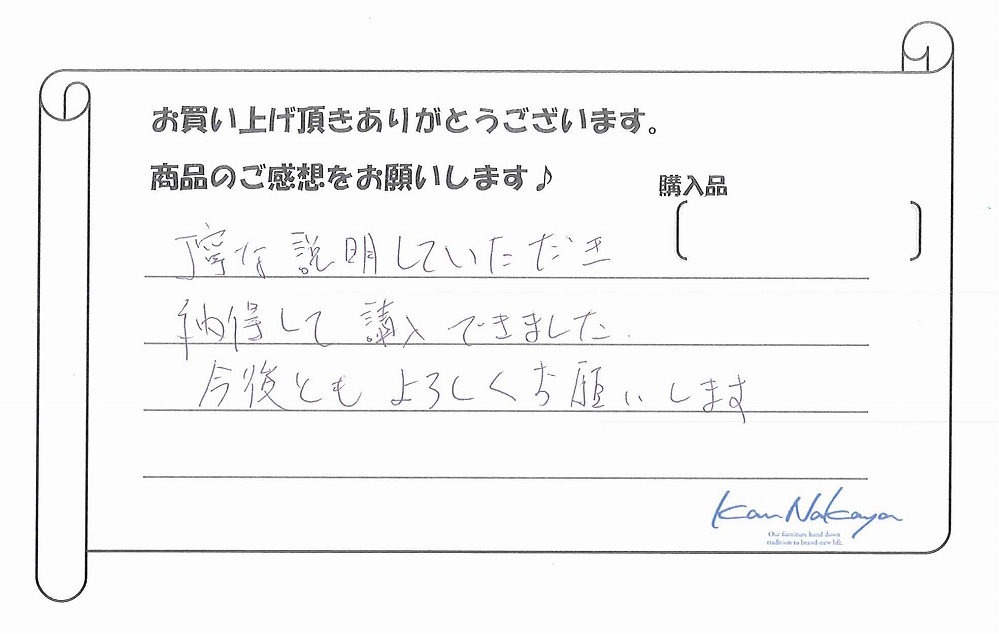 お買い上げ頂きありがとうございます。
商品のご感想をお願いします♪
購入品
丁寧な説明していただき
納得して購入できました.
今後ともよろしくお願いします
Kan Nakaya
Our furniture hand down
tradition to brand-new life.